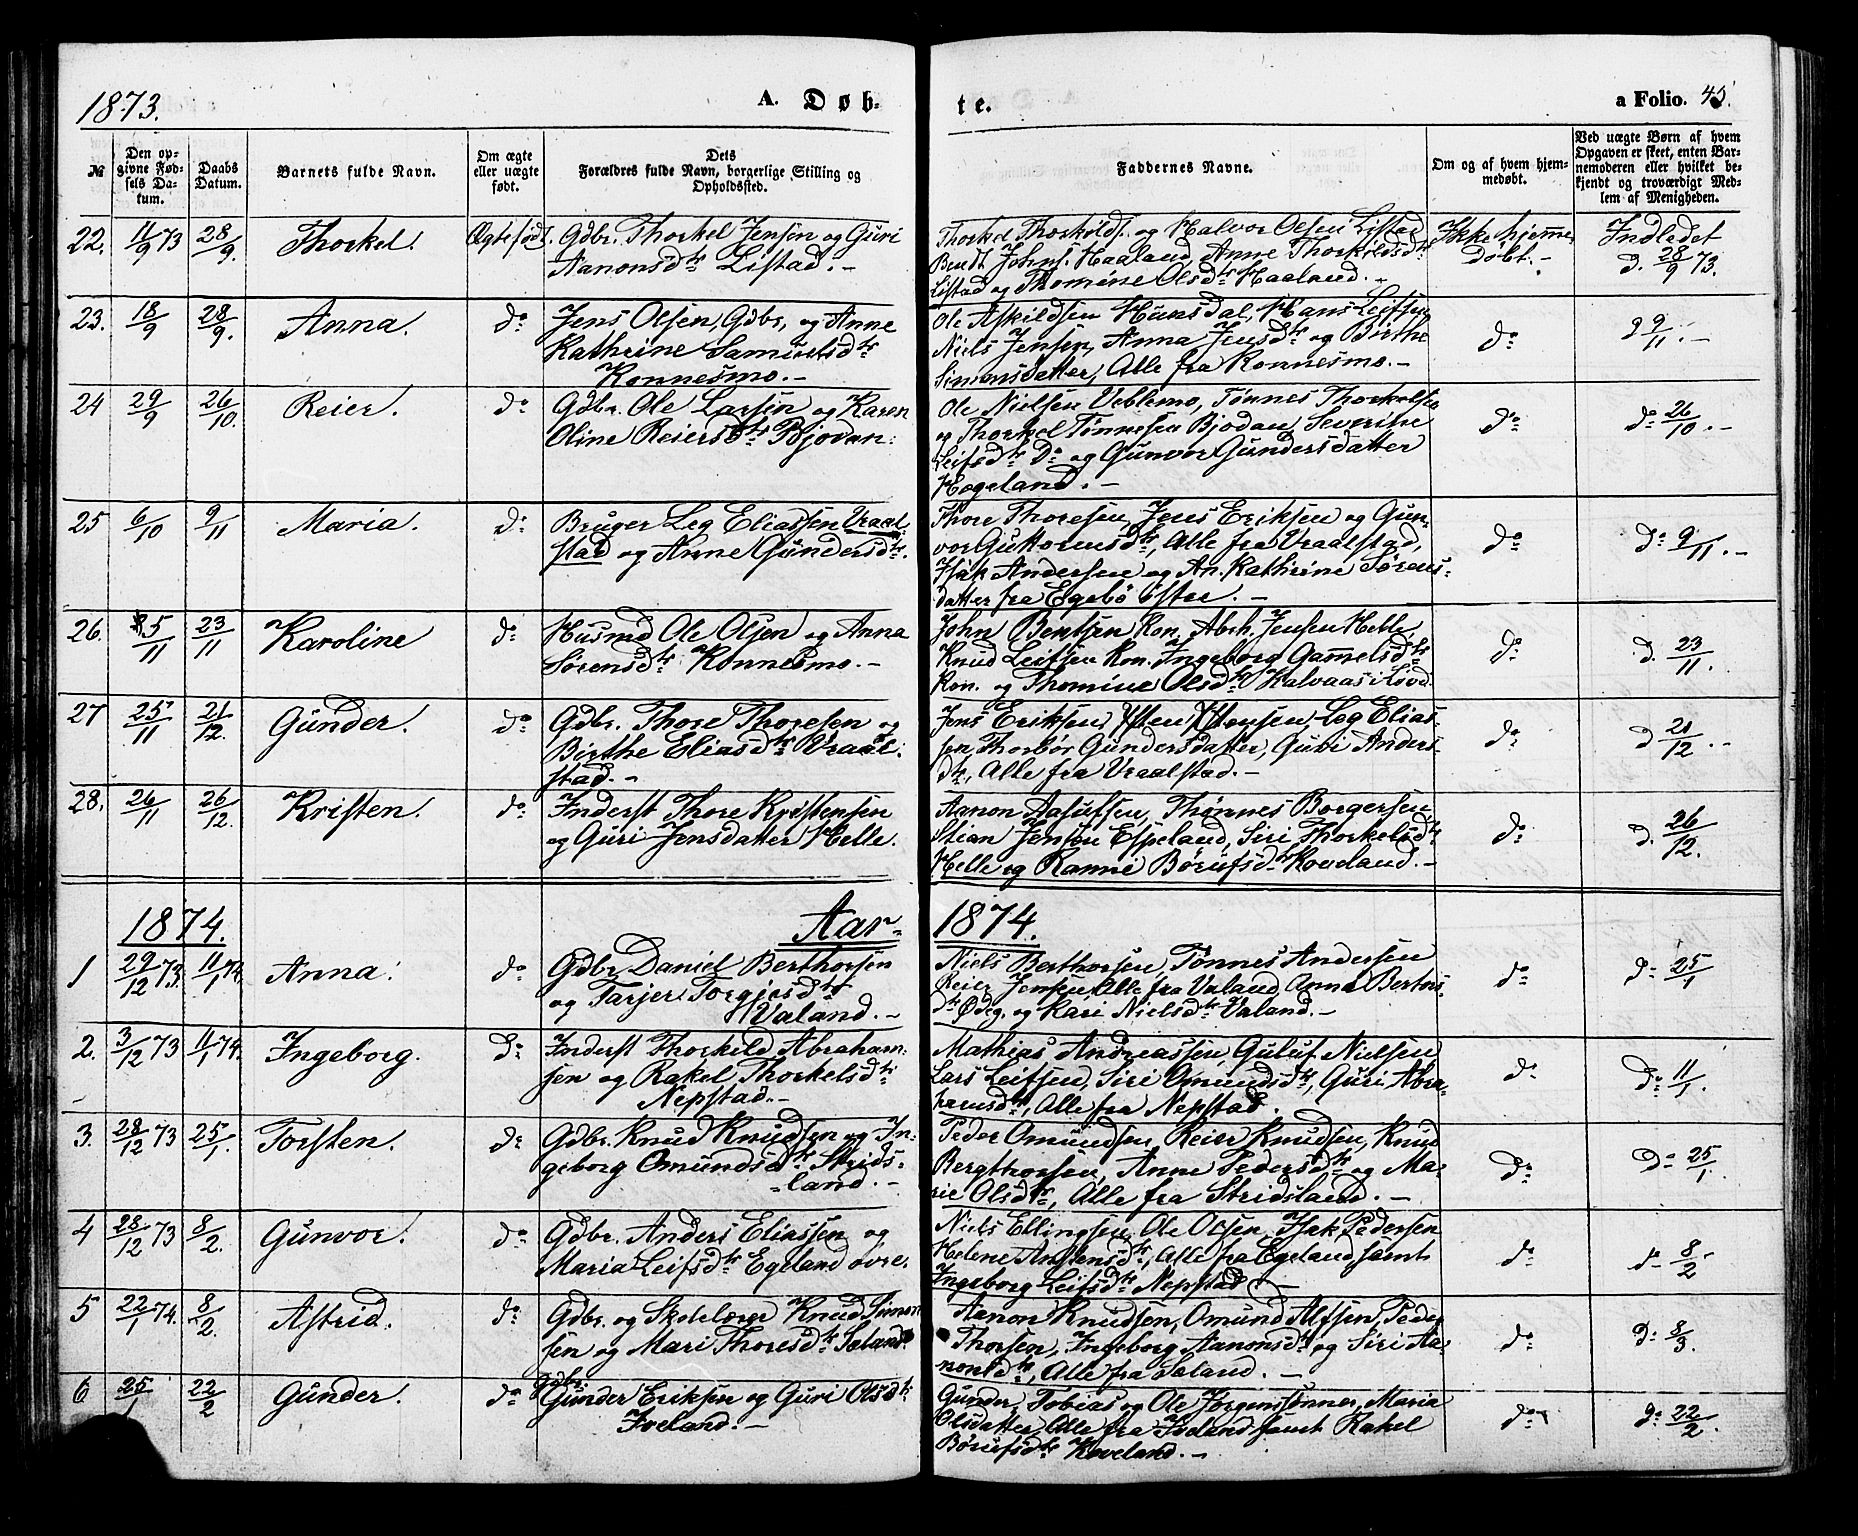 1873.
A. Døb-
te.
a Folio. 45.
№
Den op-
givne Fød-
sels Da-
tum.
Daabs
Datum.
Barnets fulde Navn.
Om ægte
eller uægte
født.
Dets
Forældres fulde Navn, borgerlige Stilling og
Opholdssted.
Faddernes Navne.
Om og af hvem hjem-
medøbt.
Ved uægte Børn af hvem
Opgaven er skeet, enten Bar-
nemoderen eller hvilket be-
kjendt og troværdigt Med-
lem af Menigheden.
22. 11/9 73 28/9. Thorkel. Ægtefødt. Gdbr. Thorkel Jensen og Guri
Aanonsdtr Listad. -
Thorkel Thorkilds. og Halvor Olsen Listad
Bendt Johns. Haaland Anne Thorkildsdtr
Listad og Thomine Olsdtr Haaland. -
Ikke hjemme
døbt. -
Indledet
d. 28/9 73.
23. 18/9 28/9. Anna. do Jens Olsen, Gdbr, og Anne
Kathrine Samuelsdtr
Konnesmo. -
Ole Askildsen Hunsdal, Hans Leifsen,
Niels Jensen, Anna Jensdtr og Birthe
Simonsdatter, Alle fra Konnesmo. -
do 9/11. -
24 29/9 26/10. Reier. do Gdbr. Ole Larsen og Karen
Oline Reiersdtr Bjodan.
Ole Nielsen Veblemo, Tønnes Thorkelsen
og Thorkel Tønnesen Bjodan, Severine
Leifsdtr Do og Gunvor Gundersdatter
Høgeland. -
do do 26/10. -
25 6/10 9/11 Maria. do Bruger Leg Eliassen Vraal-
stad og Anne Gundersdtr.
Thore Thoresen, Jens Eriksen og Gun-
vor Guttormsdtr, Alle fra Vraalstad,
Isak Andersen og An. Kathrine Sørens-
datter fra Egebø Øster. -
do Do 9/11. -
26. 5/11 23/11 Karoline do Husmd Ole Olsen og Anna
Sørensdtr Konnesmo. -
John Bentsen Kon. Abrh. Jensen Helle,
Knud Leifsen Kon. Ingeborg Gammelsdtr
Kon. og Thomine Olsdtr Kalvaas i Løvd.
do d. 23/11.
27 25/11 21/12. Gunder. do Gdbr. Thore Thoresen og
Birthe Eliasdtr Vraal-
stad. -
Jens Eriksen, Østen Østensen, Leg Elias-
sen, Thorbør Gundersdatter, Guri Anders-
dtr, Alle fra Vraalstad. -
do d 21/12. -
28. 26/11 26/12. Kristen. do Inderst Thore Kristensen
og Guri Jensdatter Helle.
Aanon Aasulfsen, Thønnes Borgersen
Stian Jensen Espeland, Siri Thorkelsdtr
Helle og Ranni Børufsdtr Koveland. -
do d. 26/12.
1874. Aar- 1874.
1 29/12 73. 11/1 74. Anna. do Gdbr Daniel Berthorsen
og Tarjer Torgiersdtr
Valand. -
Niels Berthorsen, Tønnes Andersen
Reier Jensen, Alle fra Valand Anna Bertors-
dtr Ødeg. og Kari Nielsdtr Valand. -
do Do 25/1
2. 3/12 73 11/1 74. Ingeborg. do Inderst Thorkild Abraham-
sen og Rakel Thorkelsdtr
Nepstad. -
Mathias Andreassen, Guluf Nielsen
Lars Leifsen, Siri Omundsdtr, Guri Abra-
hamsdtr, Alle fra Nepstad.
do Do 11/1.
3. 28/12 73 25/1. Torsten. do Gdbr. Knud Knudsen og In-
geborg Omundsdtr Strids-
land. -
Peder Omundsen, Reier Knudsen, Knud
Bergthorsen, Anne Pedersdtr og Ma-
rie Olsdtr, Alle fra Stridsland. -
do Do 25/1.
4 28/12 73 8/2. Gunvor. do Gdbr. Anders Eliassen og
Maria Leifsdtr Egeland øvre.
Niels Ellingsen, Ole Olsen, Isak Pedersen
Helene Anstensdtr, Alle fra Egeland samt
Ingeborg Leifsdtr Nepstad. -
do 8/2
5 22/1 74. 8/2. Astrid. do Gdbr. og Skolelærer Knud Simon-
sen og Mari Thoresdtr Søland.
Aanon Knudsen, Omund Alfsen, Peder
Thorsen, Ingeborg Aanonsdtr og Siri Aa-
nonsdtr, Alle fra Søland. -
do Do 8/3.
6 25/1 22/2 Gunder. do Gdbr.
Gunder Eriksen og Guri Olsdtr
Iveland. -
Gunder, Tobias og Ole Jørgensønner, Maria
Olsdatter, Alle fra Iveland samt Rakel
Børufsdtr Koveland. -
do Do 22/2.